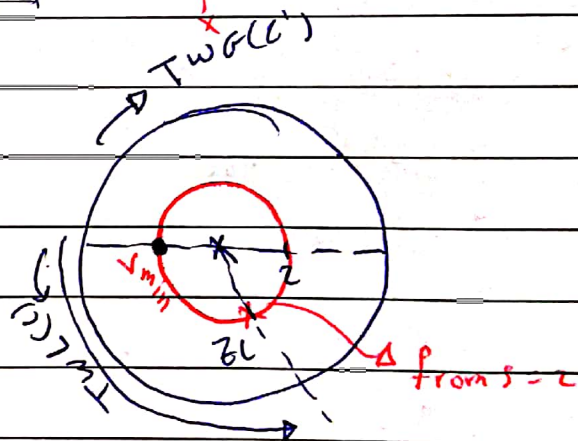 TWG(C')
Vmin
2
ZL'
TWL(C)
from S = 2